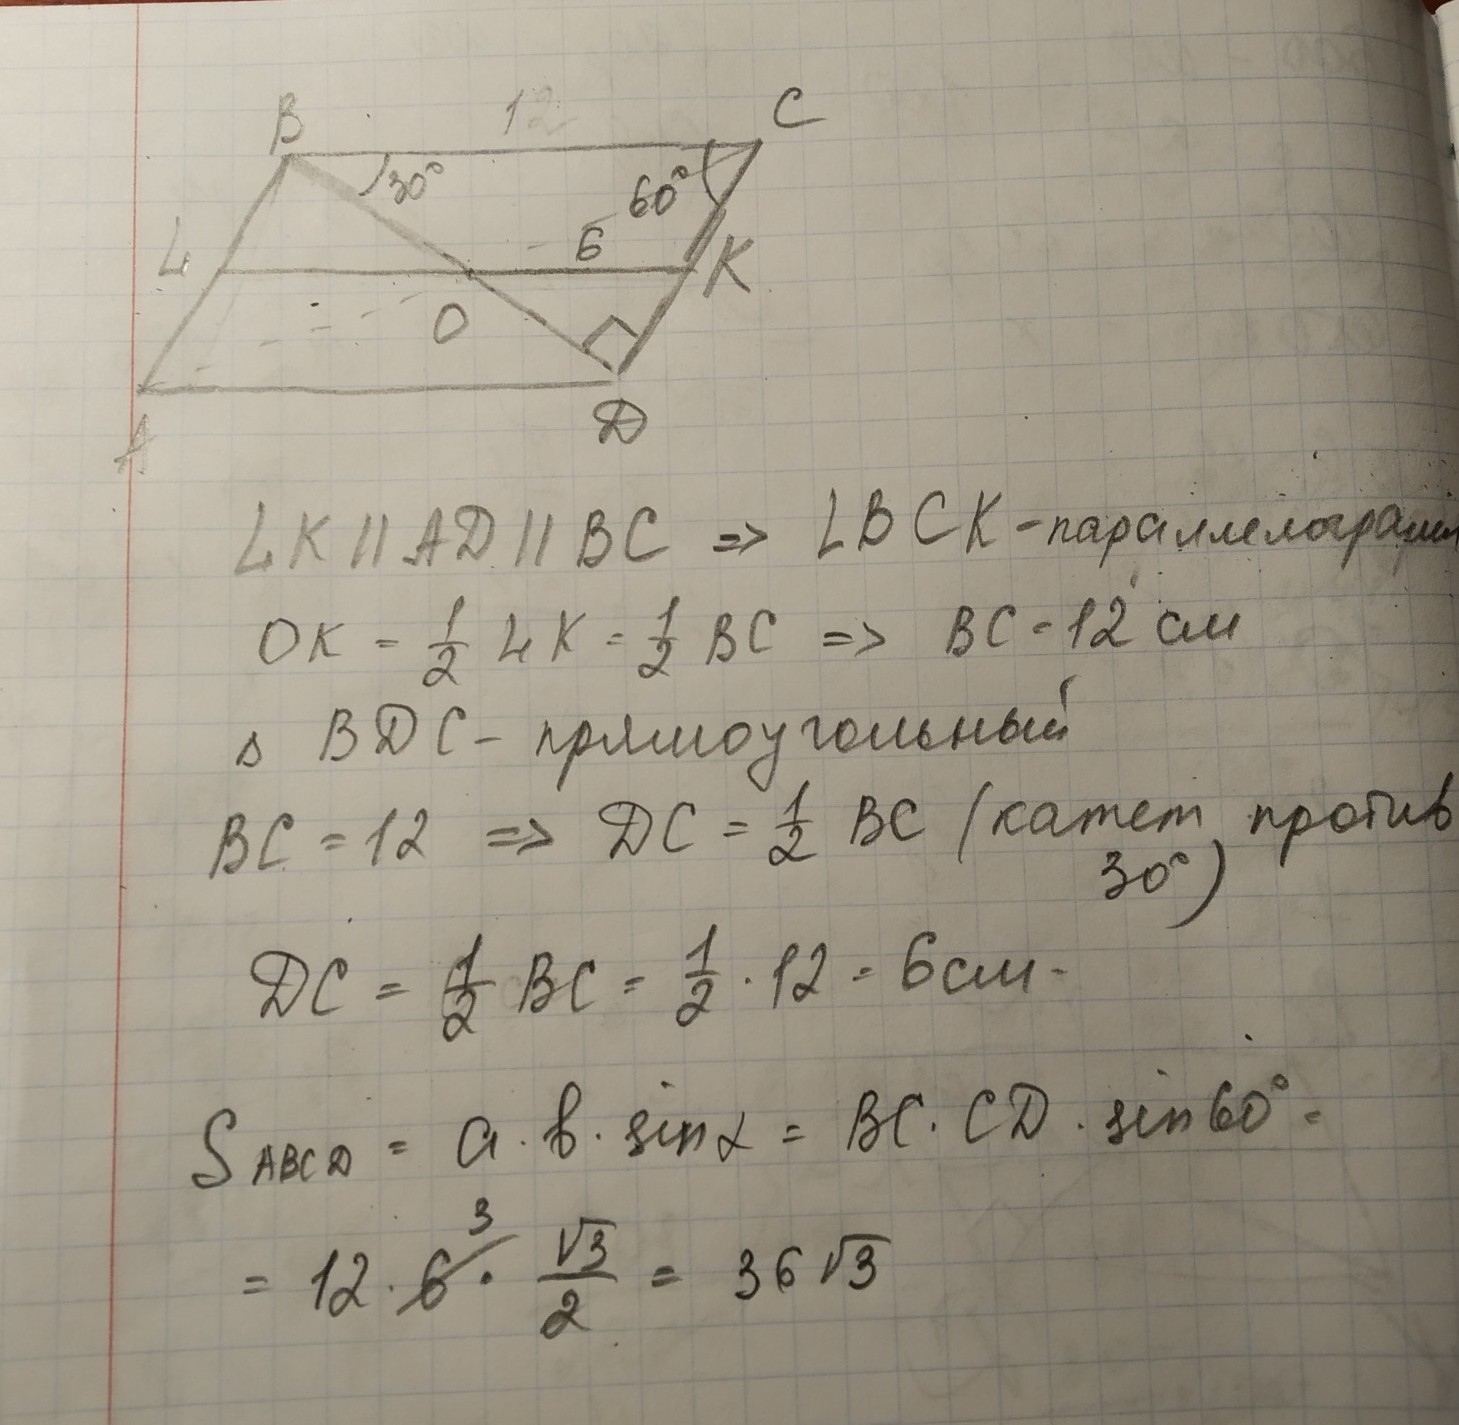 B 12 C
30° 60°
L 6 K
O
A D
LK || AD || BC => LBCK - параллелограмм
OK = 1/2 LK = 1/2 BC => BC = 12 см
△ BDC - прямоугольный
BC = 12 => DC = 1/2 BC (катет против
30°)
DC = 1/2 BC = 1/2 · 12 = 6 см.
S ABCD = a · b · sin α = BC · CD · sin 60° =
3
= 12 · 6 · √3/2 = 36 √3